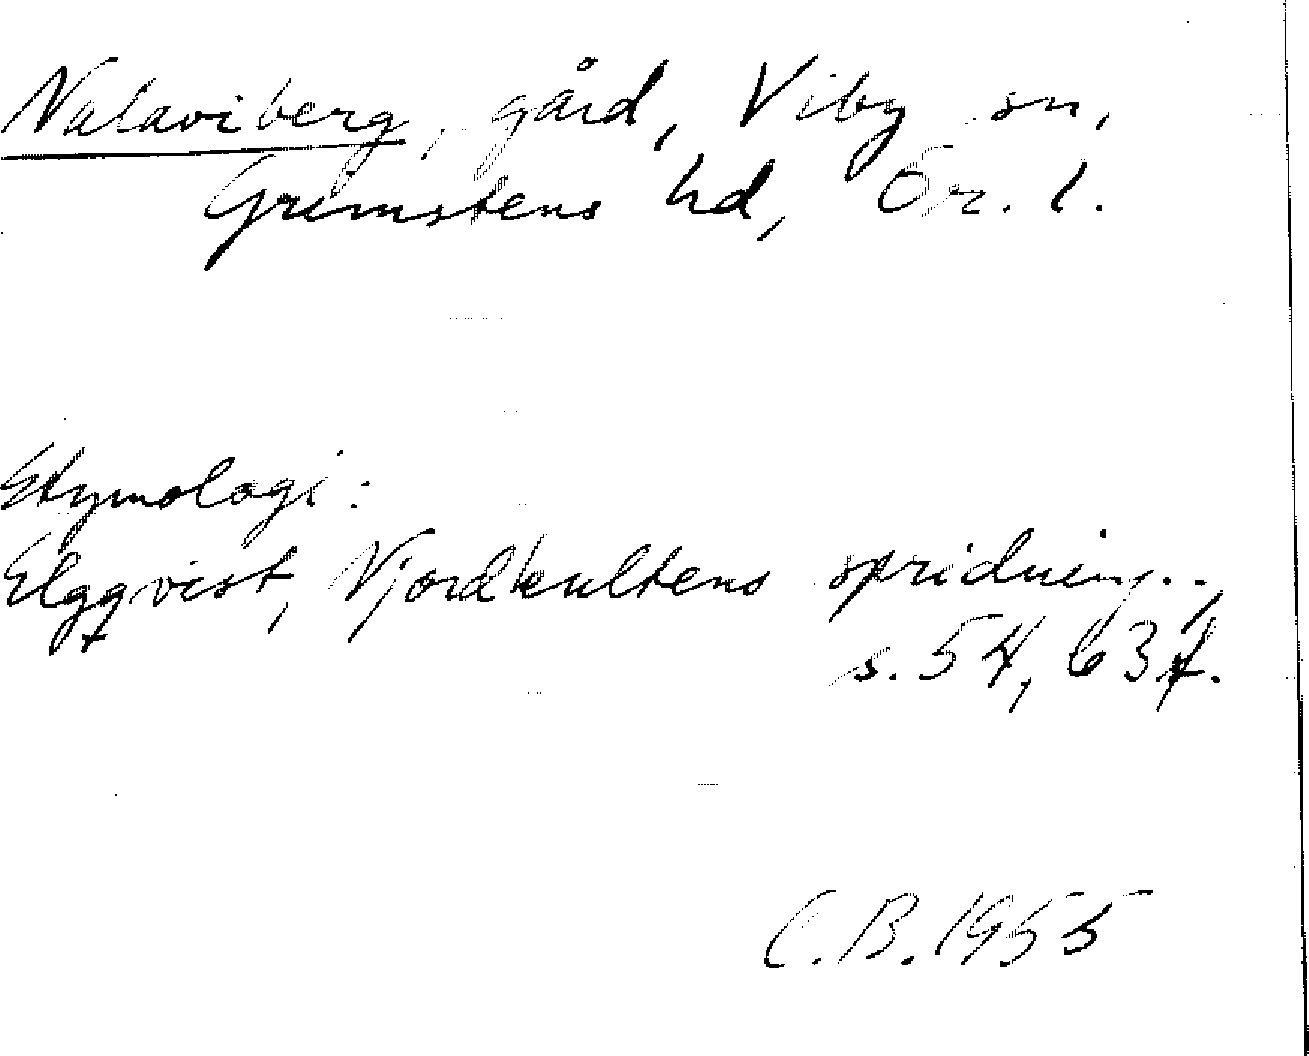 Nalaviberg, gård, Viby sn,
Grimstens hd, Ör. l.
Etymologi:
Elgqvist, Njordkultens spridning..,
s. 54, 63f.
C.B. 1955